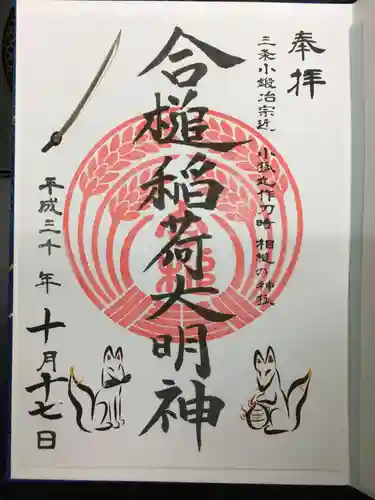 奉拝
三条小鍛冶宗近 小狐丸作刀時 相槌の神狐
合槌稲荷大明神
平成三十年十月十七日